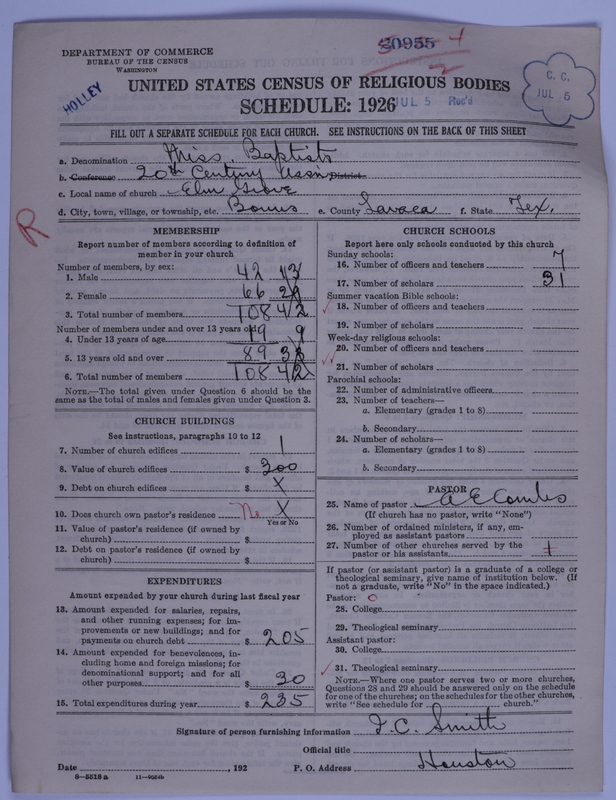 DEPARTMENT OF COMMERCE
BUREAU OF THE CENSUS
WASHINGTON
30955 4
HOLLEY
C. C.
JUL 5
UNITED STATES CENSUS OF RELIGIOUS BODIES
SCHEDULE: 1926
JUL 5 Rec'd
FILL OUT A SEPARATE SCHEDULE FOR EACH CHURCH. SEE INSTRUCTIONS ON THE BACK OF THIS SHEET
a. Denomination Miss. Baptists
b. Conference 20th Century Assn District
c. Local name of church Elm Grove
d. City, town, village, or township, etc. Bonus e. County Lavaca f. State Tex.
R
MEMBERSHIP
Report number of members according to definition of
member in your church
Number of members, by sex:
1. Male 42 13
2. Female 66 29
3. Total number of members 108 42
Number of members under and over 13 years old:
4. Under 13 years of age 19 9
5. 13 years old and over 89 33
6. Total number of members 108 42
NOTE.—The total given under Question 6 should be the
same as the total of males and females given under Question 3.
CHURCH BUILDINGS
See instructions, paragraphs 10 to 12
7. Number of church edifices 1
8. Value of church edifices $ 200
9. Debt on church edifices $ X
10. Does church own pastor's residence No X
Yes or No
11. Value of pastor's residence (if owned by
church) $
12. Debt on pastor's residence (if owned by
church) $
EXPENDITURES
Amount expended by your church during last fiscal year
13. Amount expended for salaries, repairs,
and other running expenses; for im-
provements or new buildings; and for
payments on church debt $ 205
14. Amount expended for benevolences, in-
cluding home and foreign missions; for
denominational support; and for all
other purposes $ 30
15. Total expenditures during year $ 235
CHURCH SCHOOLS
Report here only schools conducted by this church
Sunday schools:
16. Number of officers and teachers 7
17. Number of scholars 31
Summer vacation Bible schools:
18. Number of officers and teachers
19. Number of scholars
Week-day religious schools:
20. Number of officers and teachers
21. Number of scholars
Parochial schools:
22. Number of administrative officers
23. Number of teachers—
a. Elementary (grades 1 to 8)
b. Secondary
24. Number of scholars—
a. Elementary (grades 1 to 8)
b. Secondary
PASTOR
25. Name of pastor A E Combs
(If church has no pastor, write "None")
26. Number of ordained ministers, if any, em-
ployed as assistant pastors
27. Number of other churches served by the
pastor or his assistants 1
If pastor (or assistant pastor) is a graduate of a college or
theological seminary, give name of institution below. (If
not a graduate, write "No" in the space indicated.)
Pastor: O
28. College
29. Theological seminary
Assistant pastor:
30. College
31. Theological seminary
NOTE.—Where one pastor serves two or more churches,
Questions 28 and 29 should be answered only on the schedule
for one of the churches; on the schedules for the other churches,
write "See schedule for church."
Signature of person furnishing information J. C. Smith
Official title
Date , 192 P. O. Address Houston
8—5518 a 11—9054b